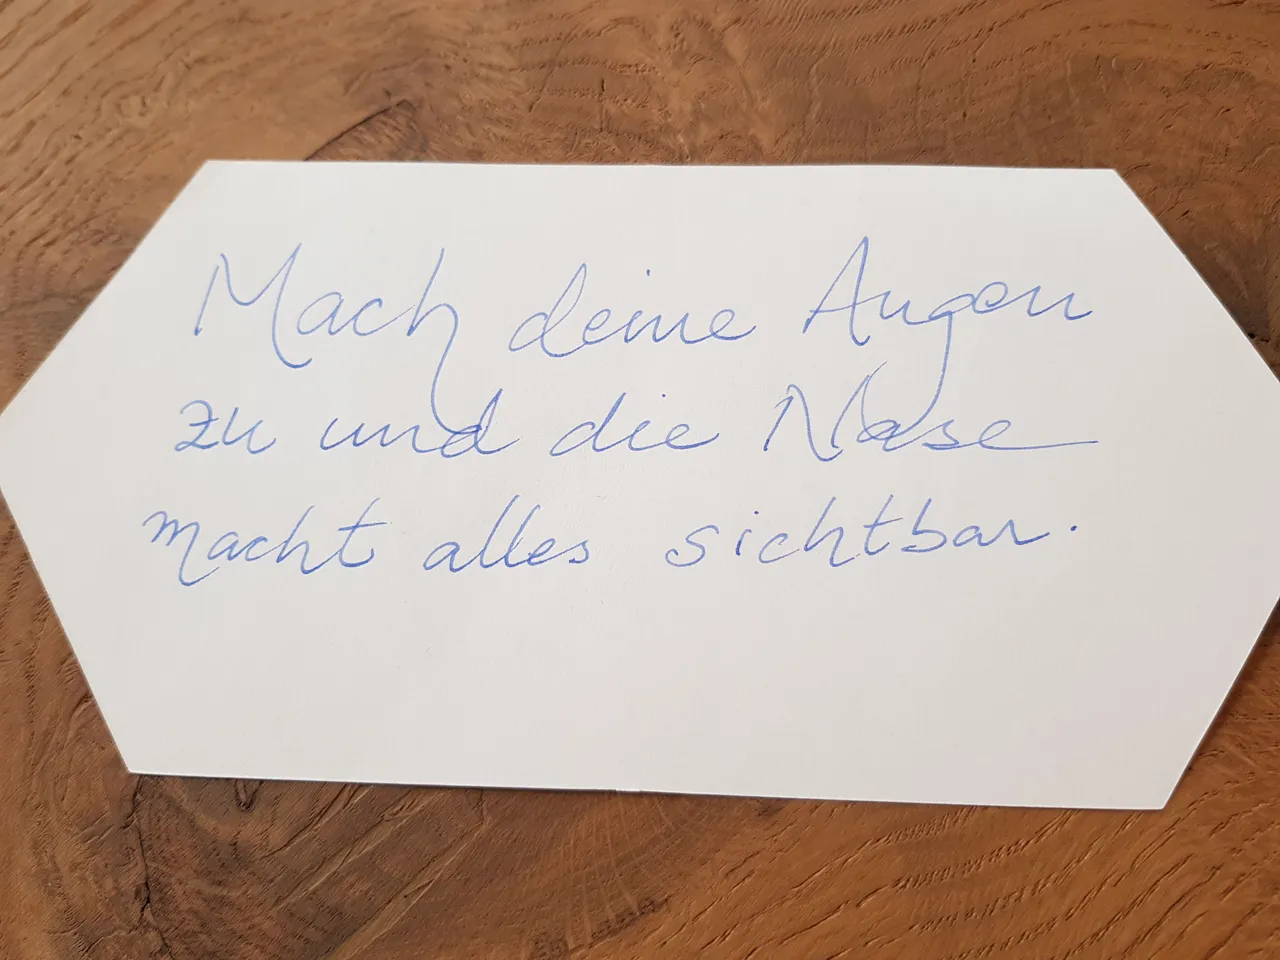 Mach deine Augen
zu und die Nase
macht alles sichtbar.